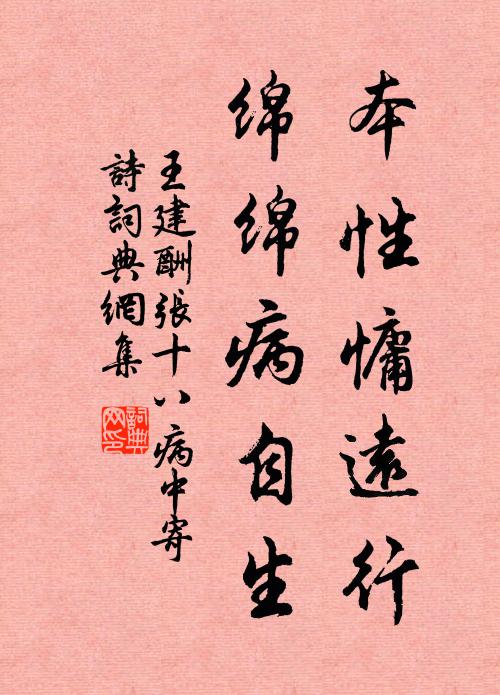 本性慵遠行
綿綿病自生
王建酬張十八病中寄
詩詞典網集
詞典网印